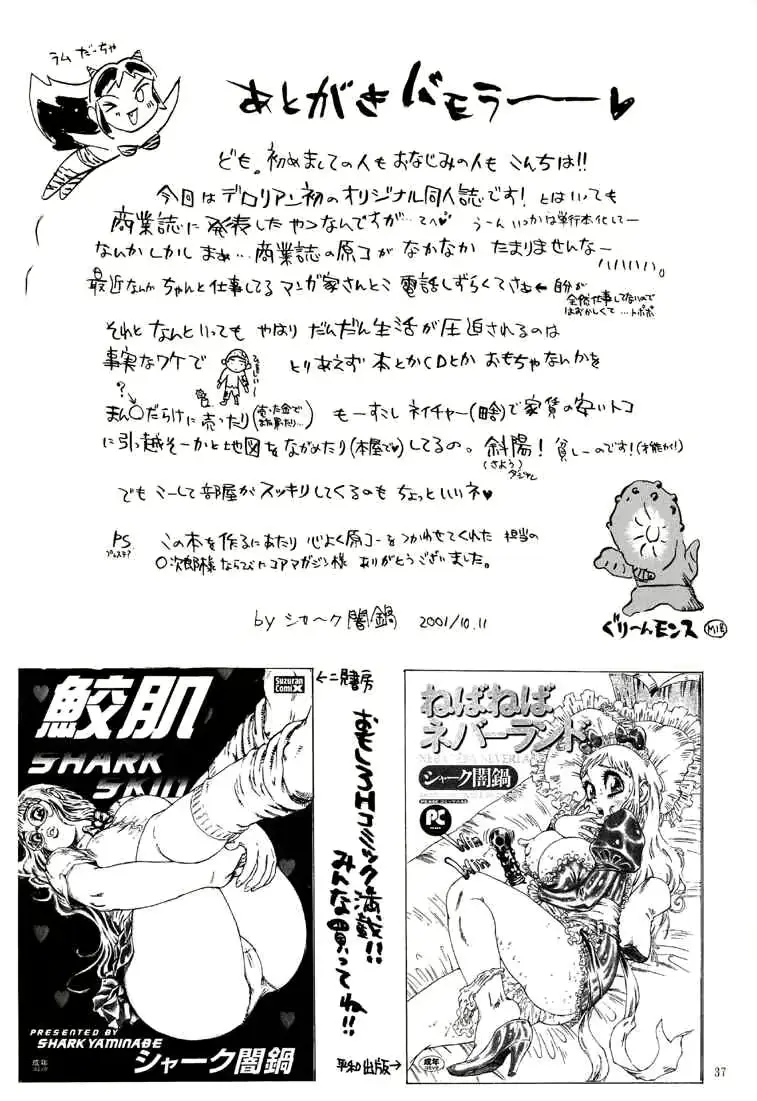 ラムだっちゃ
あとがきバモラーーー♥
ども。初めましての人もおなじみの人もこんちは!!
今回はデロリアン初のオリジナル同人誌です! とはいっても
商業誌に発表したヤツなんですが…てへ♥ うーんいつかは単行本化してー
なんかしかしまぁ…商業誌の原コがなかなかたまりませんなー
最近なんかちゃんと仕事してるマンガ家さんとこ電話しずらくてさぁ←自分が
全然仕事してないので
はずかしくて…トホホ
それとなんといってもやはりだんだん生活が圧迫されるのは
事実なワケで とりあえず本とかCDとかおもちゃなんかを
?
まん○だらけに売ったり(売った金で
また買ったり…) もーすこしネイチャー(略)で家賃の安いトコ
に引っ越そーかと地図をながめたり(本屋で♥)してるの。斜陽! 貧しーのです!(才能が!)
(さよう)
でもこーして部屋がスッキリしてくるのもちょっといいネ♥
PS
この本を作るにあたり心よく原コーをつかわせてくれた担当の
○次郎様ならびにコアマガジン様ありがとうございました。
by シャーク闇鍋 2001/10.11
ぐりーんモンス
鮫肌
SHARK
SKIN
Suzuran
Comix
←二見書房
PRESENTED BY
SHARK YAMINABE
シャーク闇鍋
成年
おもしろHコミック満載!!
みんな買ってね!!
平和出版→
ねばねば
ネバーランド
シャーク闇鍋
PC
Win
Win
成年
37